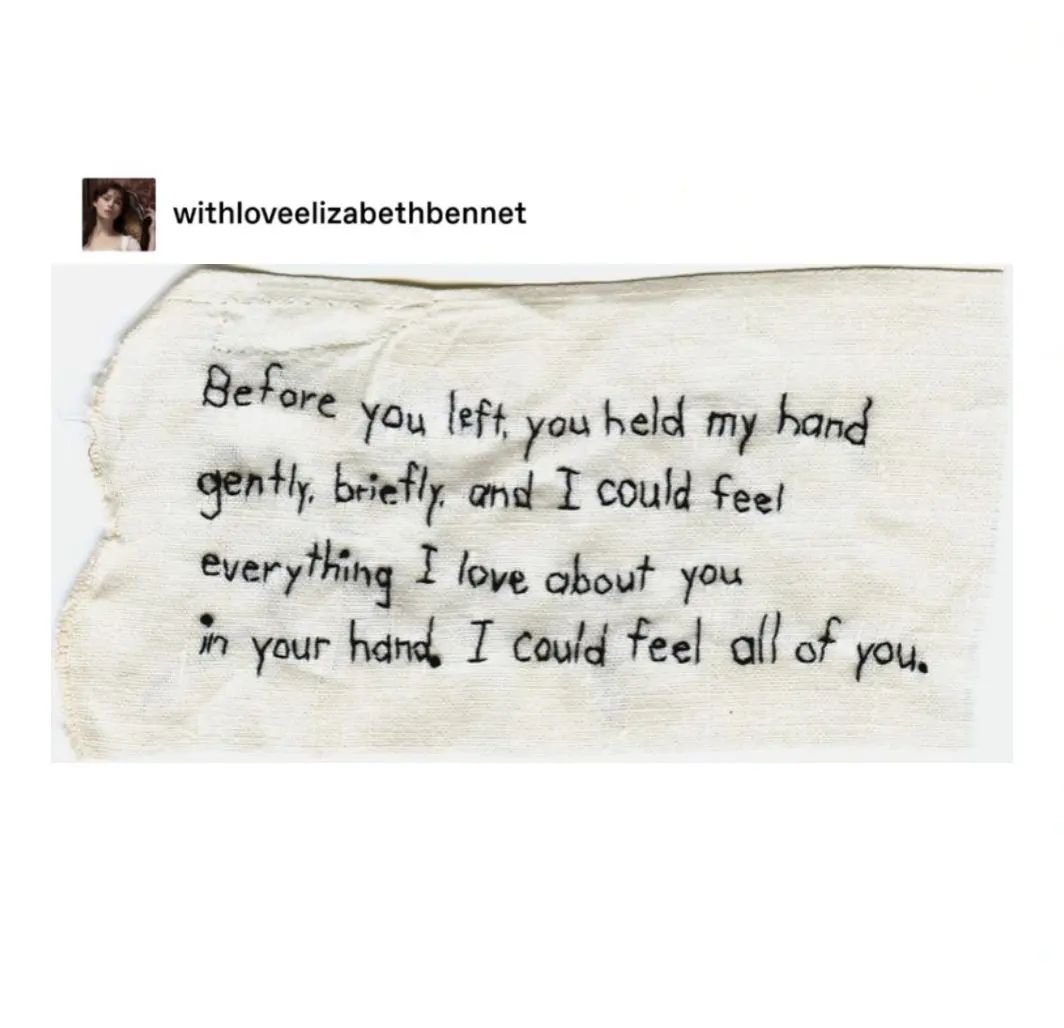 withloveelizabethbennet
Before you left, you held my hand
gently, briefly, and I could feel
everything I love about you
in your hand. I could feel all of you.